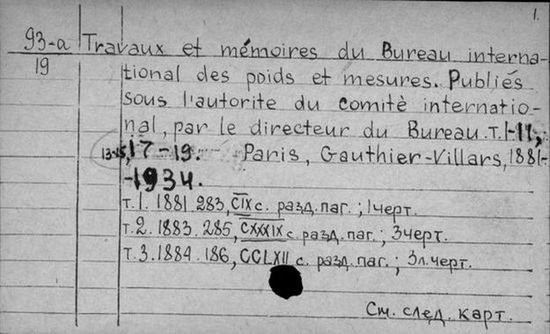 1.
93-a Travaux et mémoires du Bureau interna-
19 tional des poids et mesures. Publiés
sous l'autorite du comitè internatio-
nal, par le directeur du Bureau. т. 1-11,
13-15, 17-19. Paris, Gauthier-Villars, 1881-
-1934.
т.1. 1881 283, CIX с. разд. паг.; 1 черт.
т.2. 1883. 285, CXXXIX с. разд. паг.; 3 черт.
т.3. 1884. 186, CCLXII с. разд. паг.; 3 л. черт.
См. след. карт.